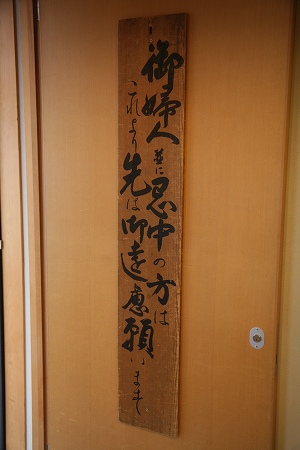 御婦人並に忌中の方は
これより先は御遠慮願います